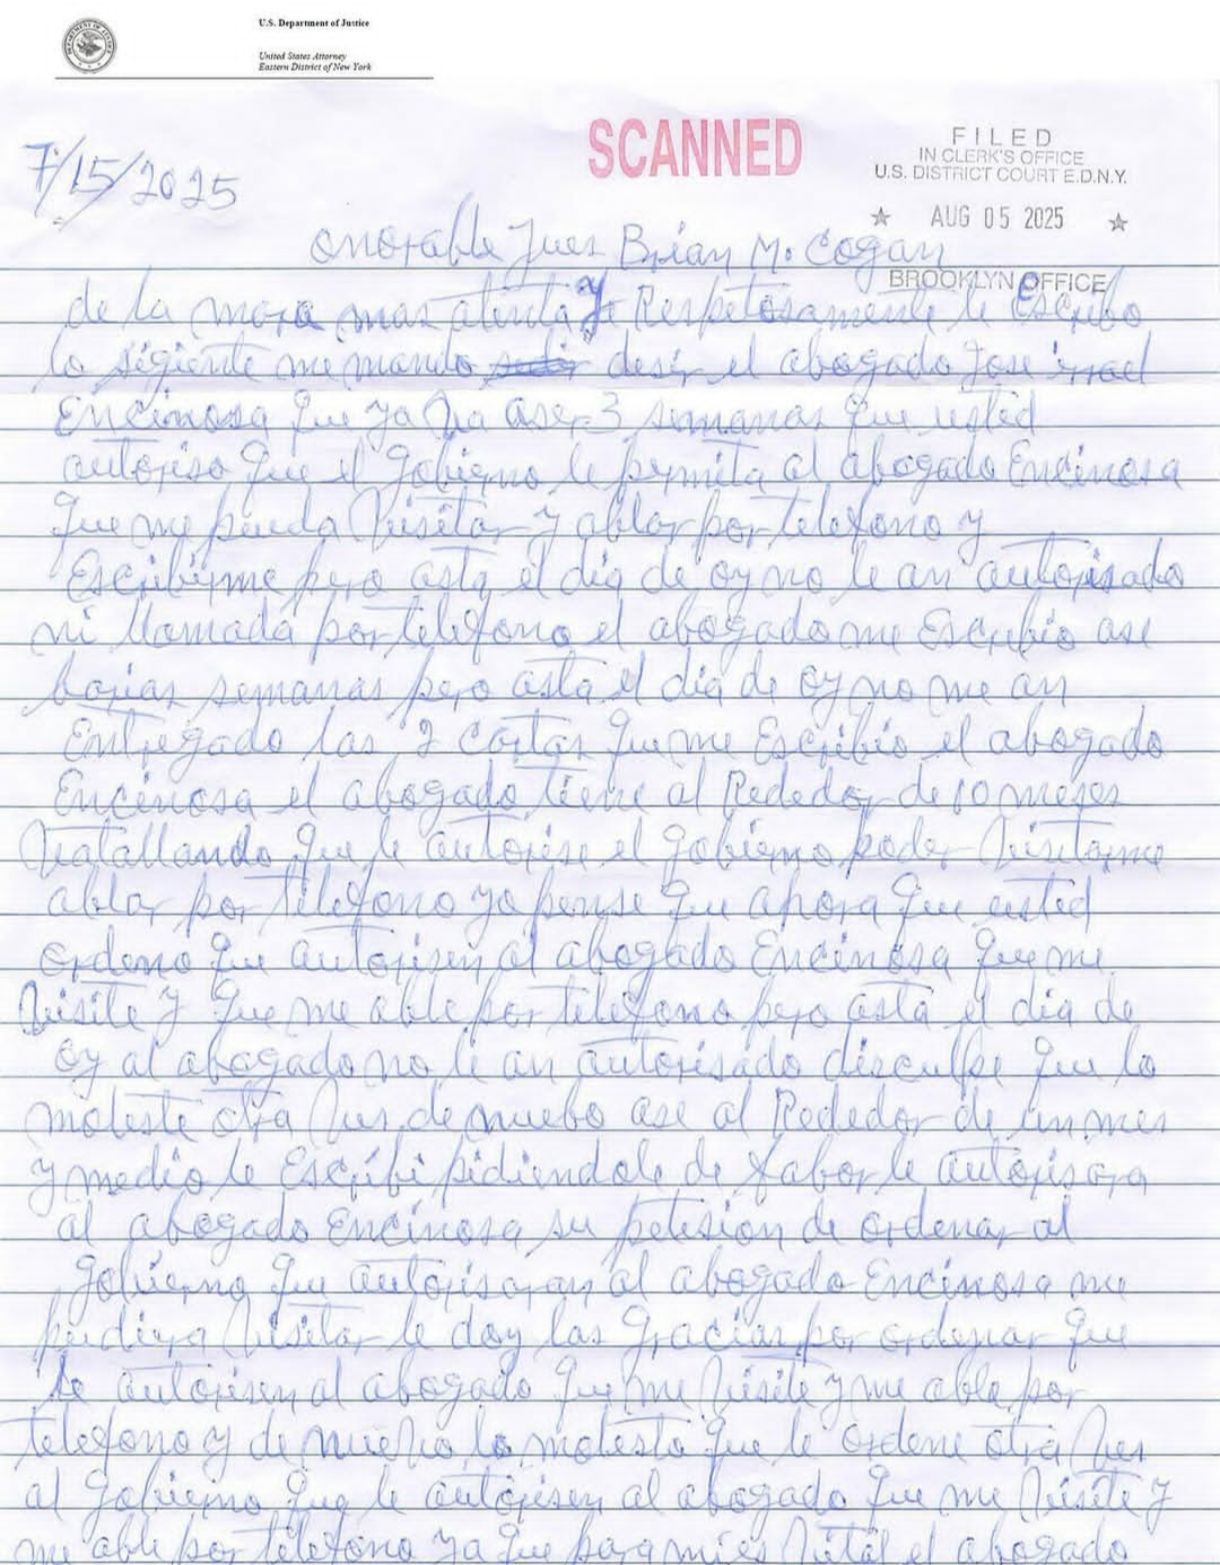 U.S. Department of Justice
United States Attorney
Eastern District of New York
SCANNED
FILED
IN CLERK'S OFFICE
U.S. DISTRICT COURT E.D.N.Y.
★ AUG 05 2025 ★
BROOKLYN OFFICE
7/15/2025
onorable Jues Brian M. Cogan
de la mera mas atenta y Respetosamente le Escribo
lo sigiente me mando desir el abogado Jose
Encinosa que ya ba aser 3 semanas que usted
autoriso que el gobierno le permita al abogado Encinosa
que me pueda visitar y ablar por telefono y
Escribirme pero asta el dia de oy no le an autorisado
ni llamada por telefono el abogado me Escribio ase
barias semanas pero asta el dia de oy no me an
Entregado las 2 cartas que me Escribio el abogado
Encinosa el abogado tiene al Rededor de 10 meses
vatallando que le autorise el gobierno poder visitarme
ablar por telefono yo pense que ahora que usted
ordeno que autorisen al abogado Encinosa que me
visite y que me able por telefono pero asta el dia de
oy al abogado no le an autorisado disculpe que lo
moleste otra ves de nuebo ase al Rededor de un mes
y medio le Escribi pidiendole de fabor le autorisara
al abogado Encinosa su petesion de ordenar al
gobierno que autorisaran al abogado Encinosa me
pudiera visitar le doy las gracias por ordenar que
le autorisen al abogado que me visite y me able por
telefono y de nuevo lo molesto que le ordene otra ves
al gobierno que le autorisen al abogado que me visite y
me able por telefono ya que para mi es vital el abogado